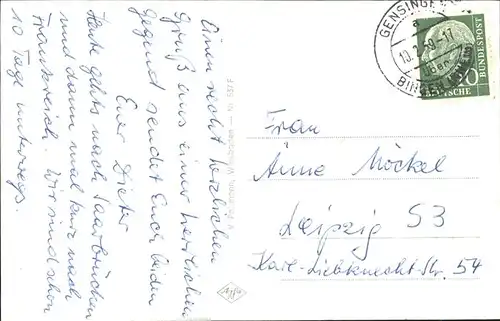 Einen recht herzlichen
Gruß aus einer herrlichen
Gegend sendet Euch beiden
Euer Dieter
Heute gehts nach Saarbrücken
und dann mal kurz nach
Frankreich. Wir sind schon
10 Tage unterwegs.
GENSINGEN
a
10.9.59-17
BINGEN
10
DEUTSCHE
BUNDESPOST
Frau
Änne Möckel
Leipzig S3
Karl-Liebknecht-Str. 54